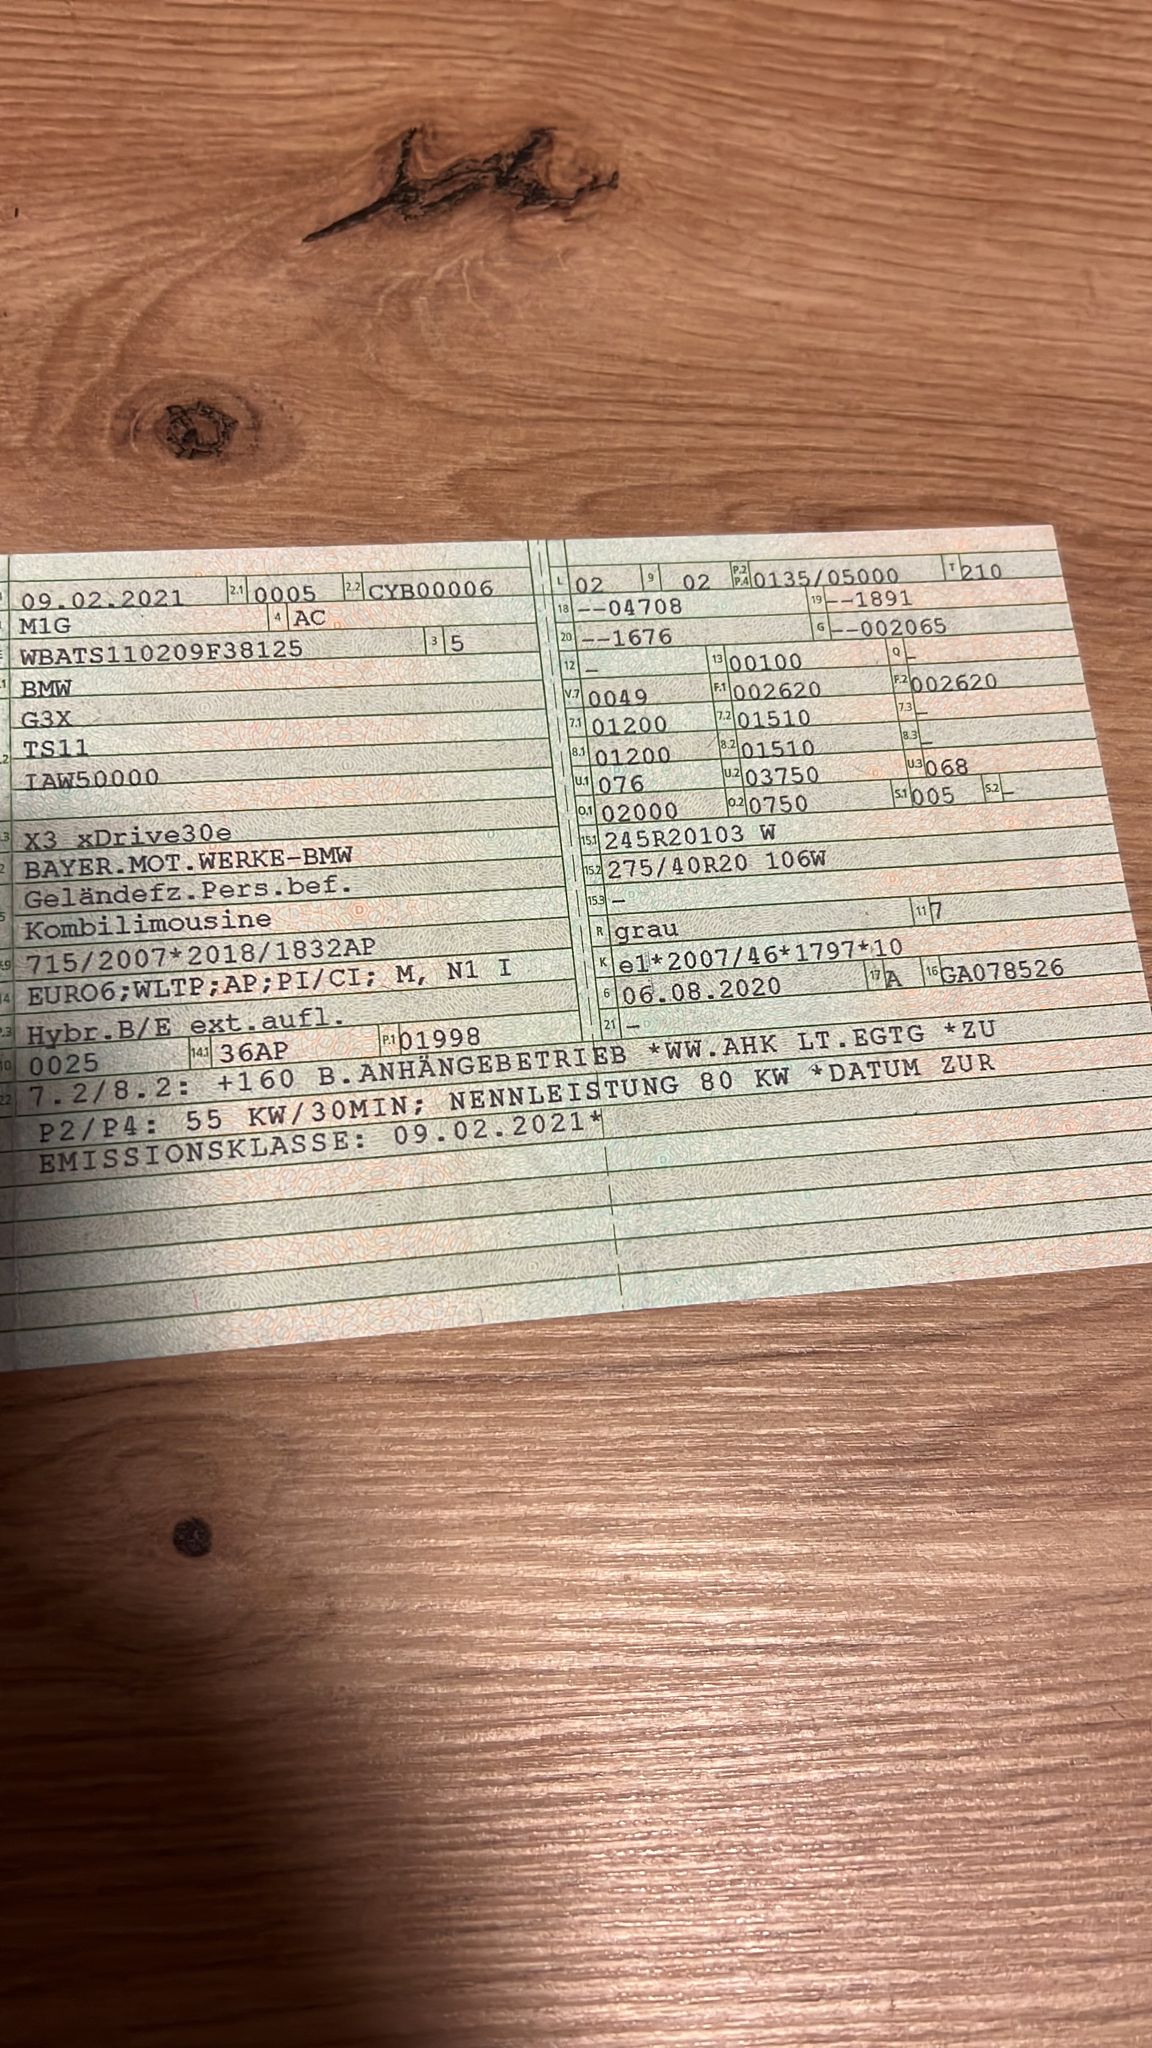 09.02.2021 2.1 0005 2.2 CYB00006
M1G 4 AC
WBATS110209F38125 3 5
BMW
G3X
TS11
IAW50000
X3 xDrive30e
BAYER.MOT.WERKE-BMW
Geländefz.Pers.bef.
Kombilimousine
715/2007*2018/1832AP
EURO6;WLTP;AP;PI/CI; M, N1 I
Hybr.B/E ext.aufl.
0025 14.1 36AP P.1 01998
L 02 9 02 P.2 P.4 0135/05000 T 210
18 --04708 19 --1891
20 --1676 G --002065
12 - 13 00100 Q -
V.7 0049 F.1 002620 F.2 002620
7.1 01200 7.2 01510 7.3 -
8.1 01200 8.2 01510 8.3 -
U.1 076 U.2 03750 U.3 068
O.1 02000 O.2 0750 S.1 005 S.2 -
15.1 245R20103 W
15.2 275/40R20 106W
15.3 -
R grau 11 7
K e1*2007/46*1797*10
6 06.08.2020 17 A 16 GA078526
21 -
22 7.2/8.2: +160 B.ANHÄNGEBETRIEB *WW.AHK LT.EGTG *ZU
P2/P4: 55 KW/30MIN; NENNLEISTUNG 80 KW *DATUM ZUR
EMISSIONSKLASSE: 09.02.2021*